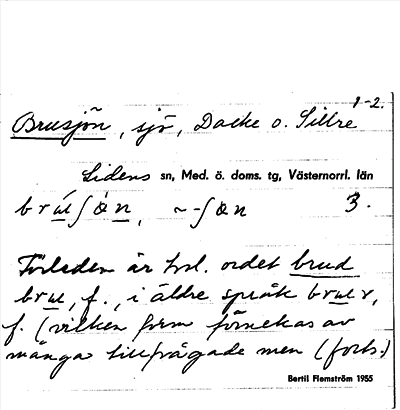 1-2.
Brusjön, sjö, Dacke o. Sillre
Lidens sn, Med. ö. doms. tg, Västernorrl. län
3.
Förleden är trol. ordet brud
f., i äldre språk
f. (vilken form förnekas av
många tillfrågade men (forts.)
Bertil Flemström 1955